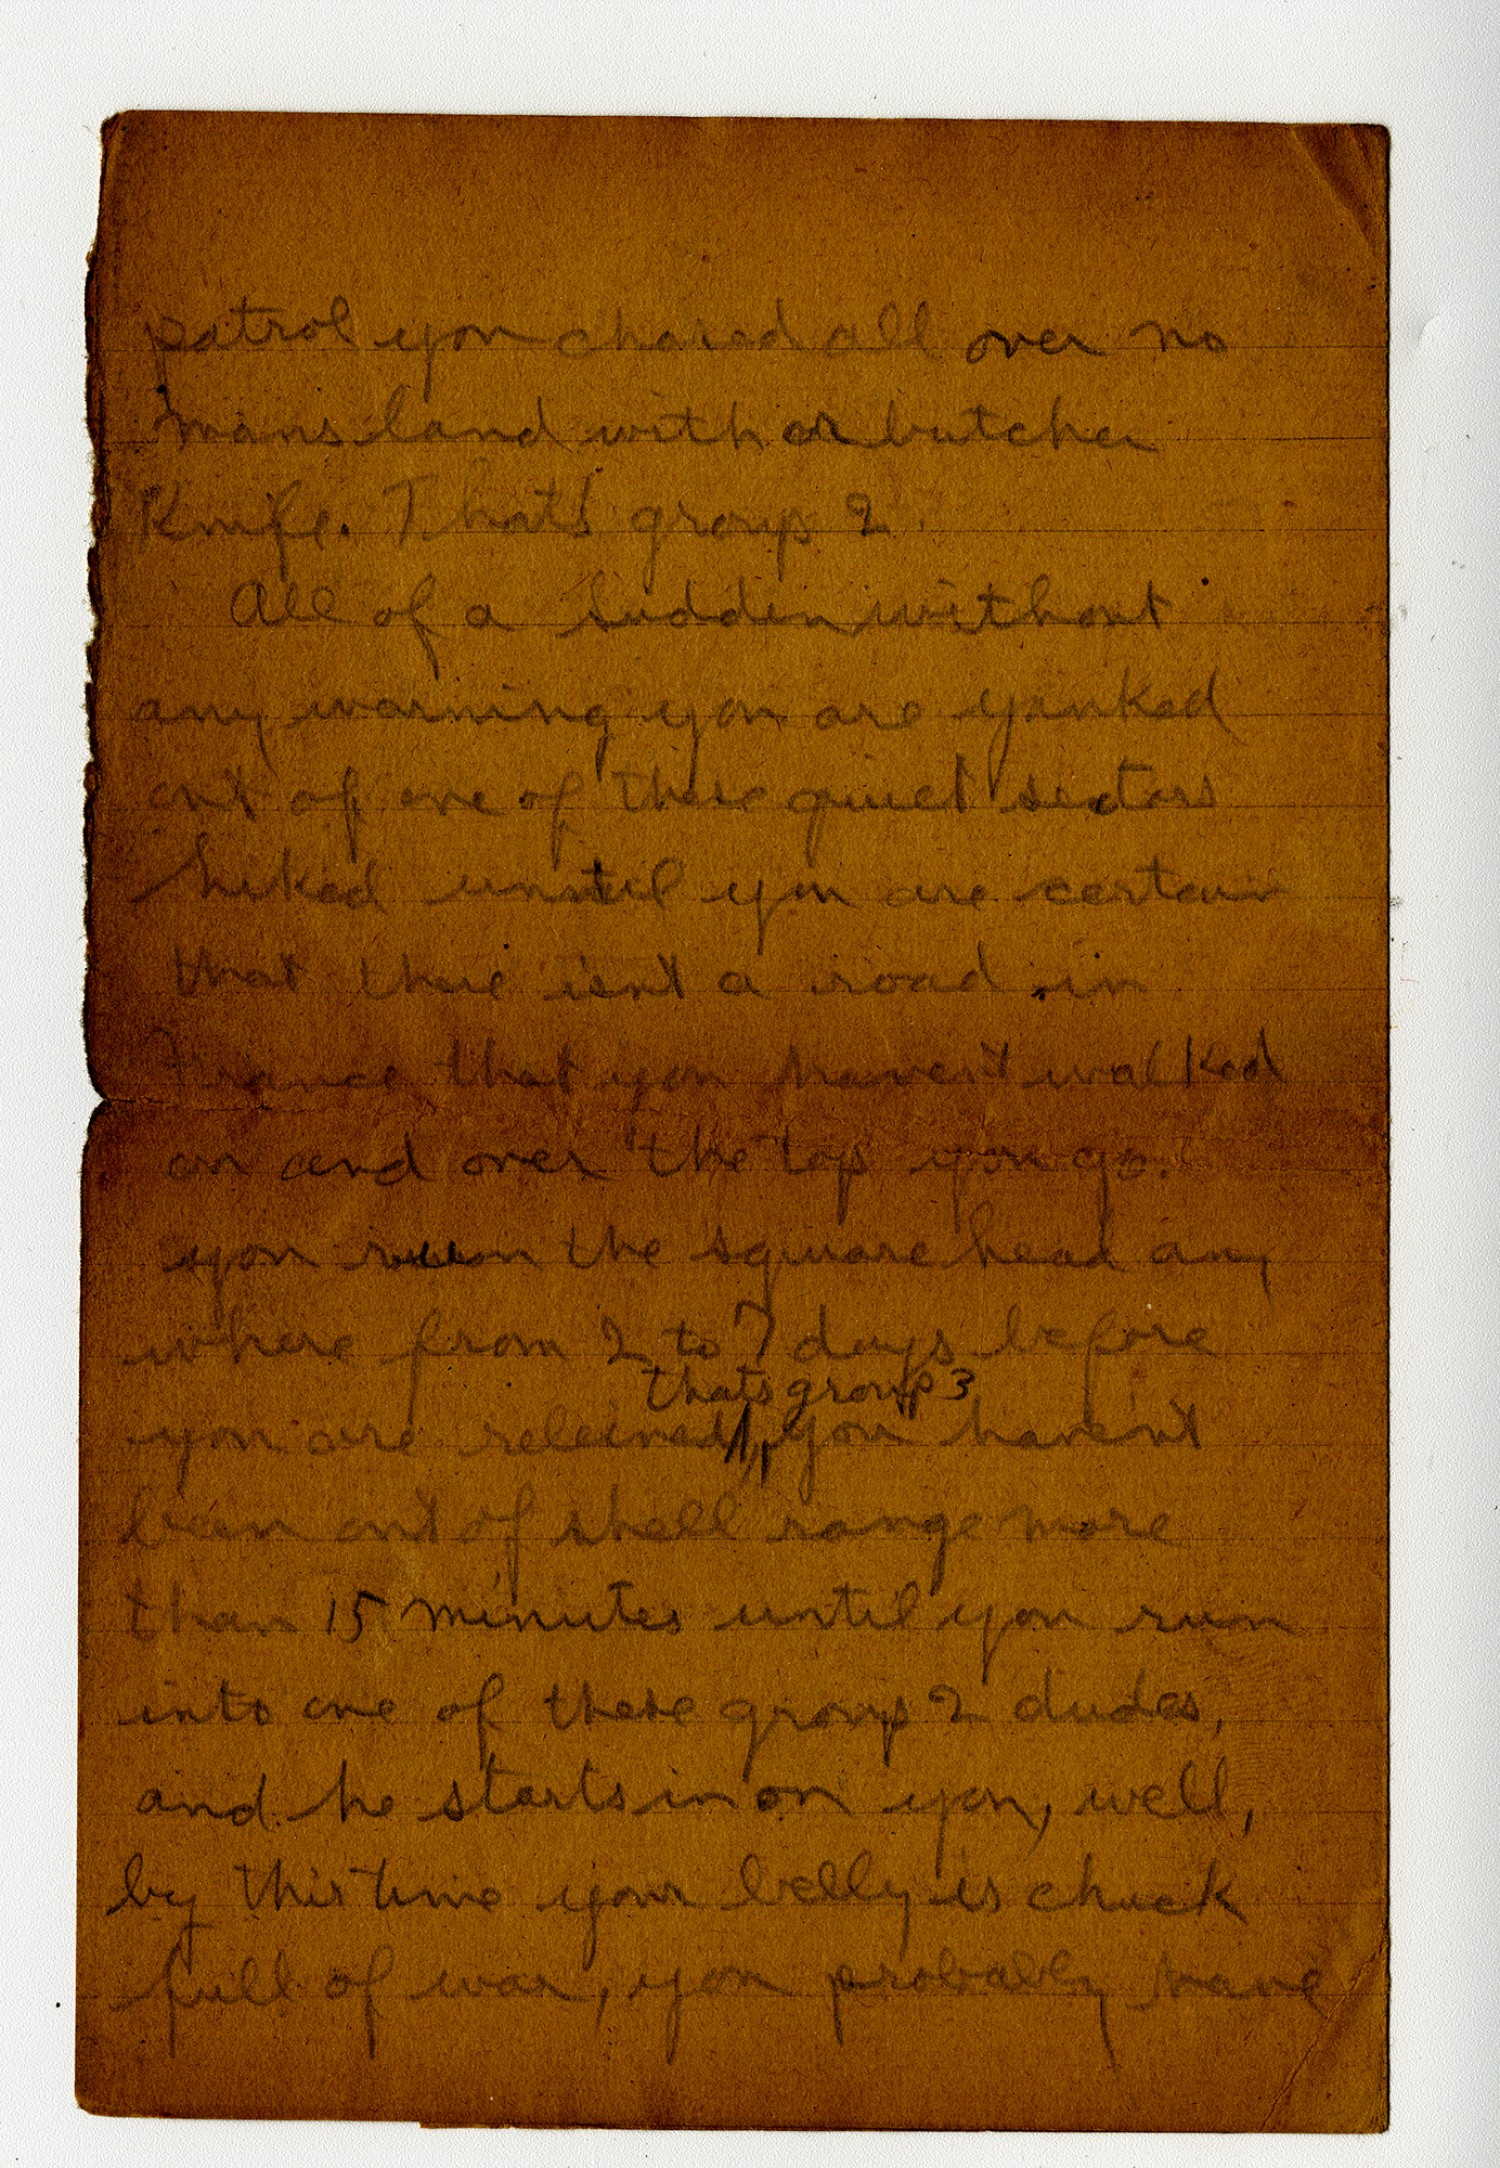 patrol you chased all over no
mans land with a butcher
Knife. That's group 2
All of a sudden without
any warning you are yanked
out of one of these quiet sectors
hiked until you are certain
that there isn't a road in
France that you haven't walked
on and over the top you go.
you run the square head any
where from 2 to 7 days before
thats group 3
you are releived, you haven't
been out of shell range more
than 15 minutes until you run
into one of these group 2 dudes,
and he starts in on you, well,
by this time your belly is chuck
full of war, you probably have